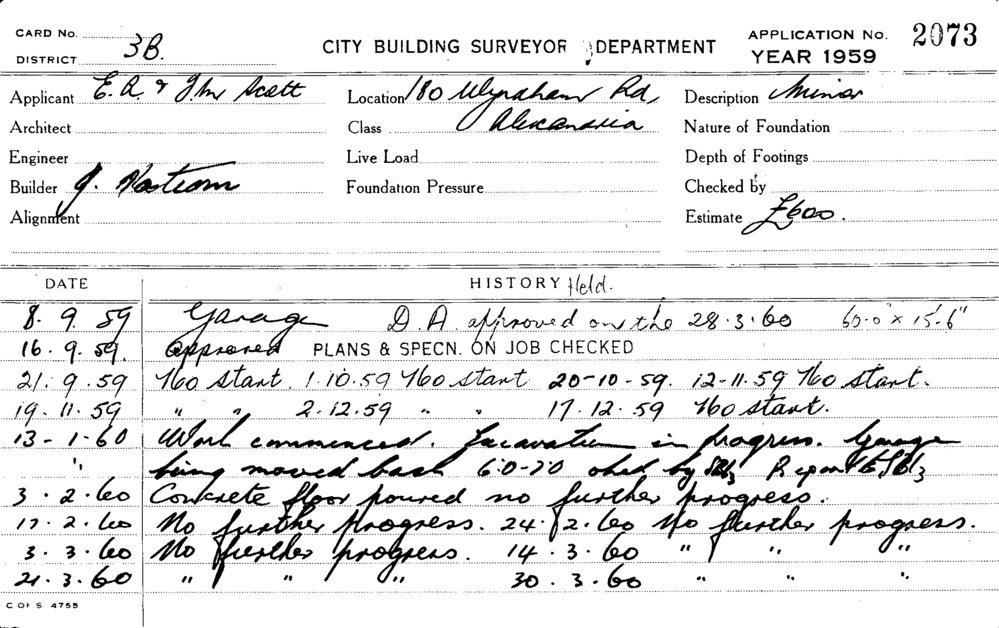 CARD No.
DISTRICT 3B.
CITY BUILDING SURVEYOR DEPARTMENT
APPLICATION No. 2073
YEAR 1959
Applicant E. A. & J. M. Scott
Location 180 Wyndham Rd,
Description Minor
Architect
Class Alexandria
Nature of Foundation
Engineer
Live Load
Depth of Footings
Builder J.
Foundation Pressure
Checked by
Alignment
Estimate £600.
DATE HISTORY Held.
8. 9. 59 Garage D. A. approved on the 28.3.60 60-0" x 15-6"
16.9.59. Approved PLANS & SPECN. ON JOB CHECKED
21.9.59 No start. 1.10.59 No start 20-10-59. 12-11.59 No start.
19.11.59 " " 2.12.59 " " 17.12.59 No start.
13-1-60 Work commenced. Excavation in progress. Garage
" being moved back by Report to
3.2.60 Concrete floor poured no further progress.
17.2.60 No further progress. 24.2.60 No further progress.
3.3.60 No further progress. 14.3.60 " " "
21.3.60 " " " 30.3.60 " " "
C OF S 4755